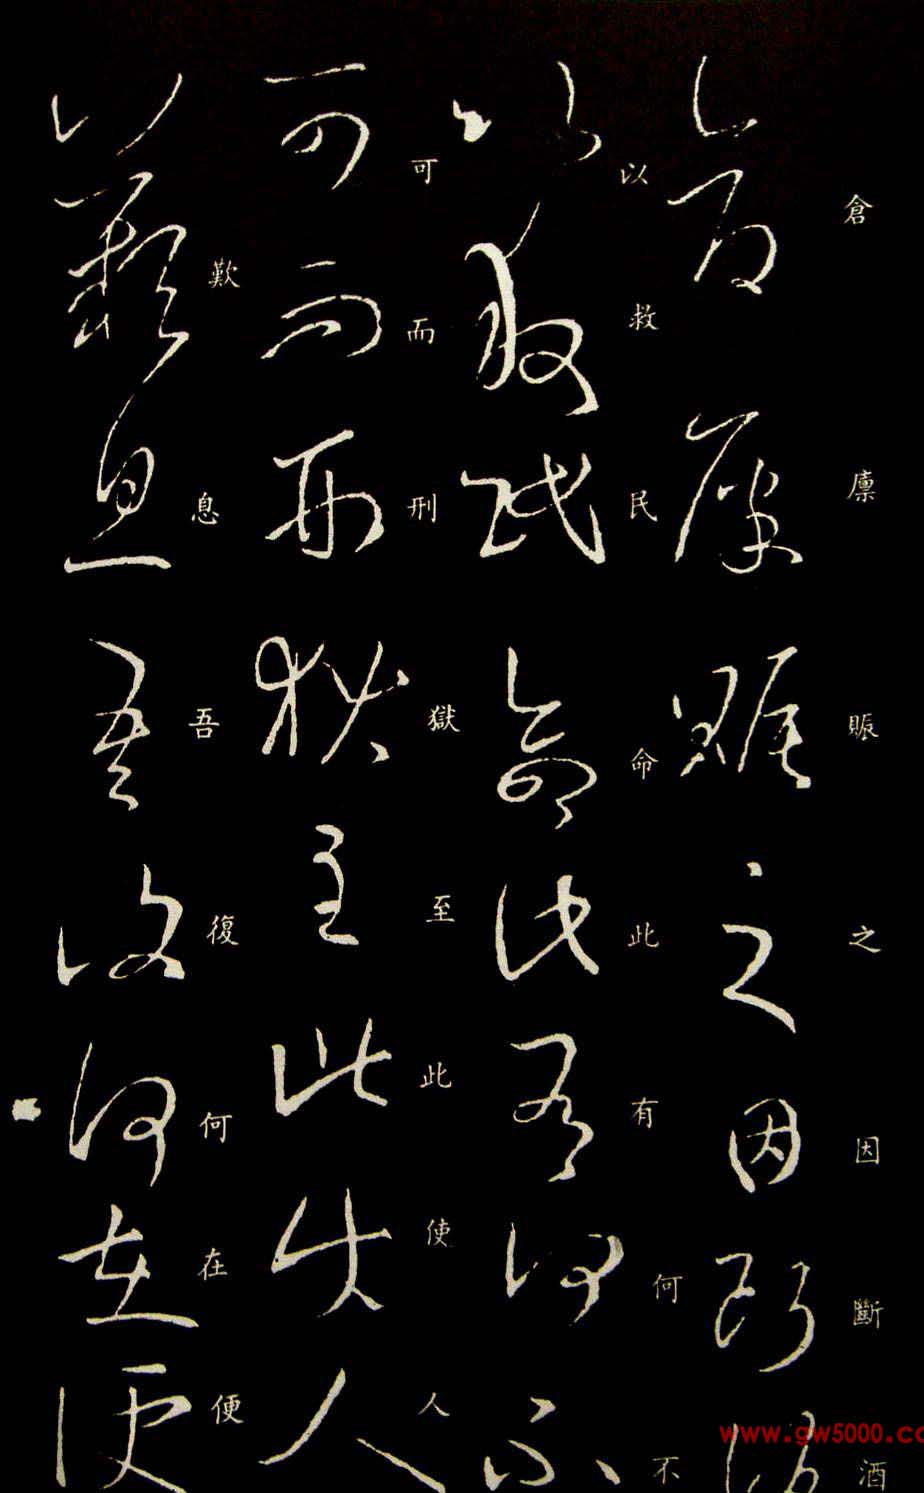 倉廩賑之因斷酒
以救民命此有何不
可而刑獄至此使人
歎息吾復何在便
www.gw5000.co